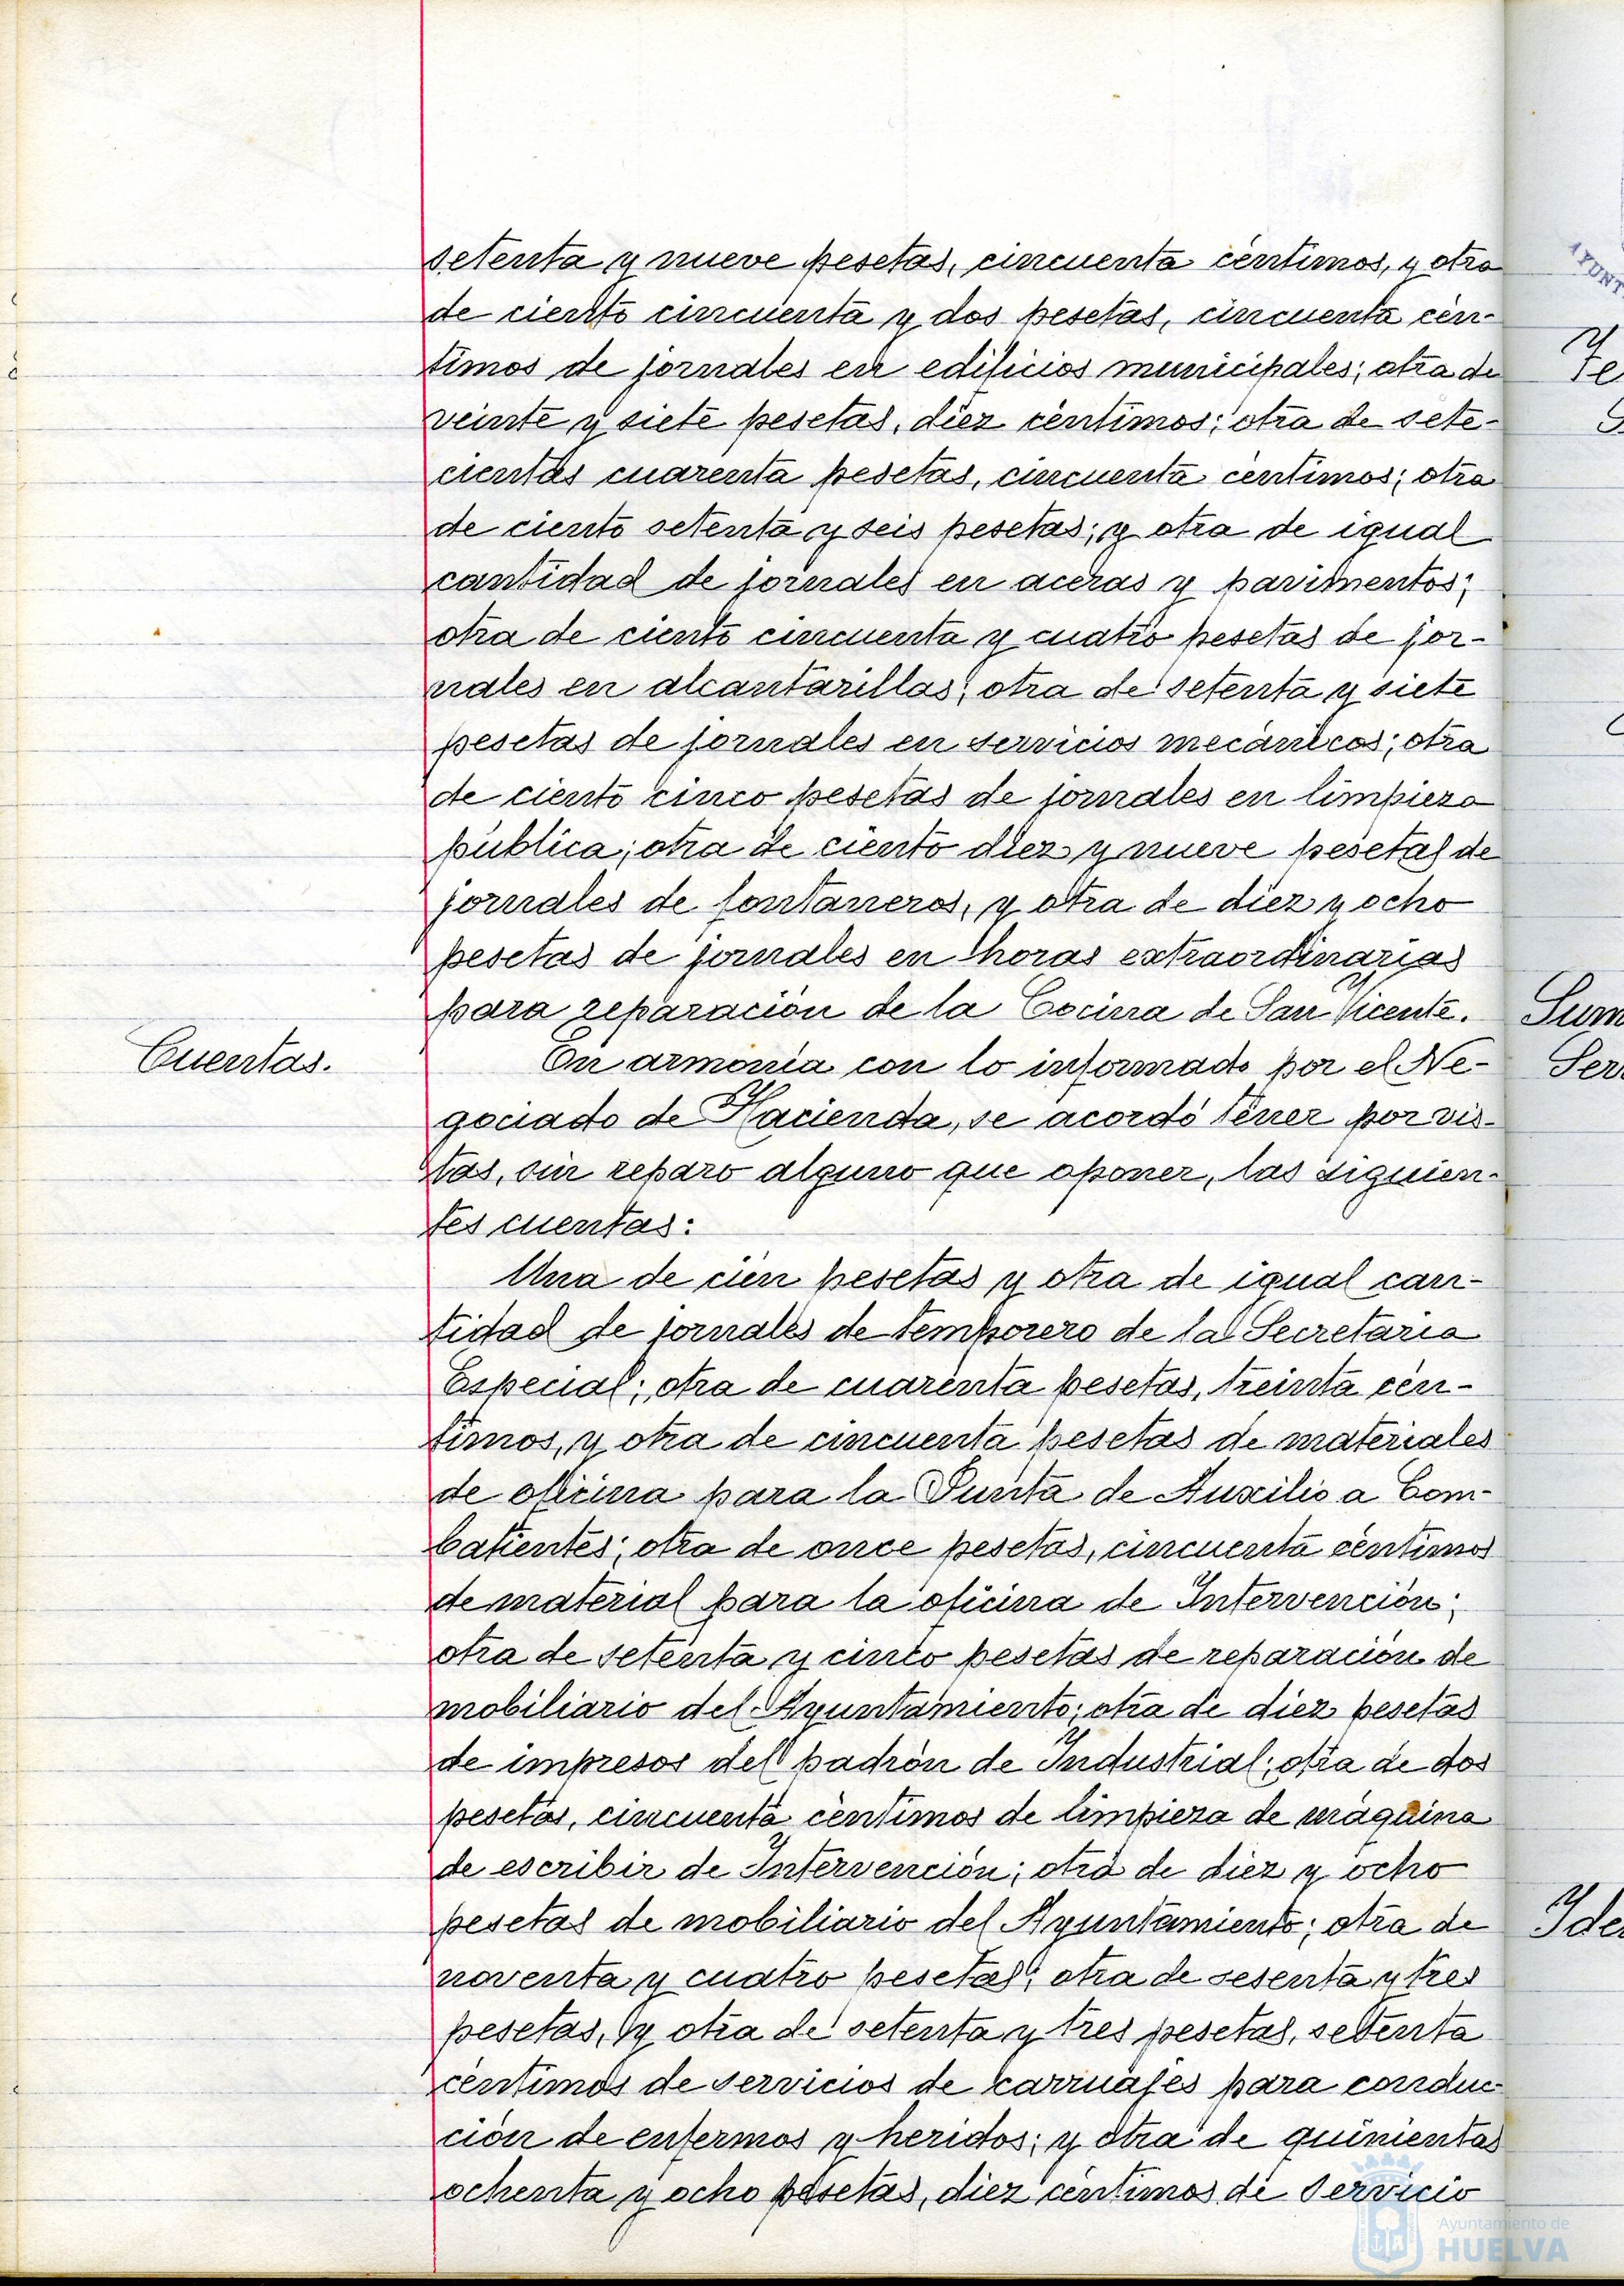 setenta y nueve pesetas, cincuenta céntimos, y otra
de ciento cincuenta y dos pesetas, cincuenta cén-
timos de jornales en edificios municipales; otra de
veinte y siete pesetas, diez céntimos; otra de sete-
cientas cuarenta pesetas, cincuenta centimos; otra
de ciento setenta y seis pesetas; y otra de igual
cantidad de jornales en aceras y pavimentos;
otra de ciento cincuenta y cuatro pesetas de jor-
nales en alcantarillas; otra de setenta y siete
pesetas de jornales en servicios mecánicos; otra
de ciento cinco pesetas de jornales en limpieza
pública; otra de ciento diez y nueve pesetas de
jornales de fontaneros, y otra de diez y ocho
pesetas de jornales en horas extraordinarias
para reparación de la Cocina de San Vicente.
Cuentas.
En armonía con lo informado por el Ne-
gociado de Hacienda, se acordó tener por vis-
tas, sin reparo alguno que oponer, las siguien-
tes cuentas:
Una de cien pesetas y otra de igual can-
tidad de jornales de temporero de la Secretaria
Especial; otra de cuarenta pesetas, treinta cén-
timos, y otra de cincuenta pesetas de materiales
de oficina para la Junta de Auxilio a Com-
batientes; otra de once pesetas, cincuenta céntimos
de material para la oficina de Intervención;
otra de setenta y cinco pesetas de reparación de
mobiliario del Ayuntamiento; otra de diez pesetas
de impresos del padrón de Industrial; otra de dos
pesetas, cincuenta céntimos de limpieza de máquina
de escribir de Intervención; otra de diez y ocho
pesetas de mobiliario del Ayuntamiento; otra de
noventa y cuatro pesetas; otra de sesenta y tres
pesetas, y otra de setenta y tres pesetas, setenta
céntimos de servicios de carruajes para conduc-
ción de enfermos y heridos; y otra de quinientas
ochenta y ocho pesetas, diez céntimos de servicio
AYUNT
Sum
Ser
Ide
Ayuntamiento de
HUELVA